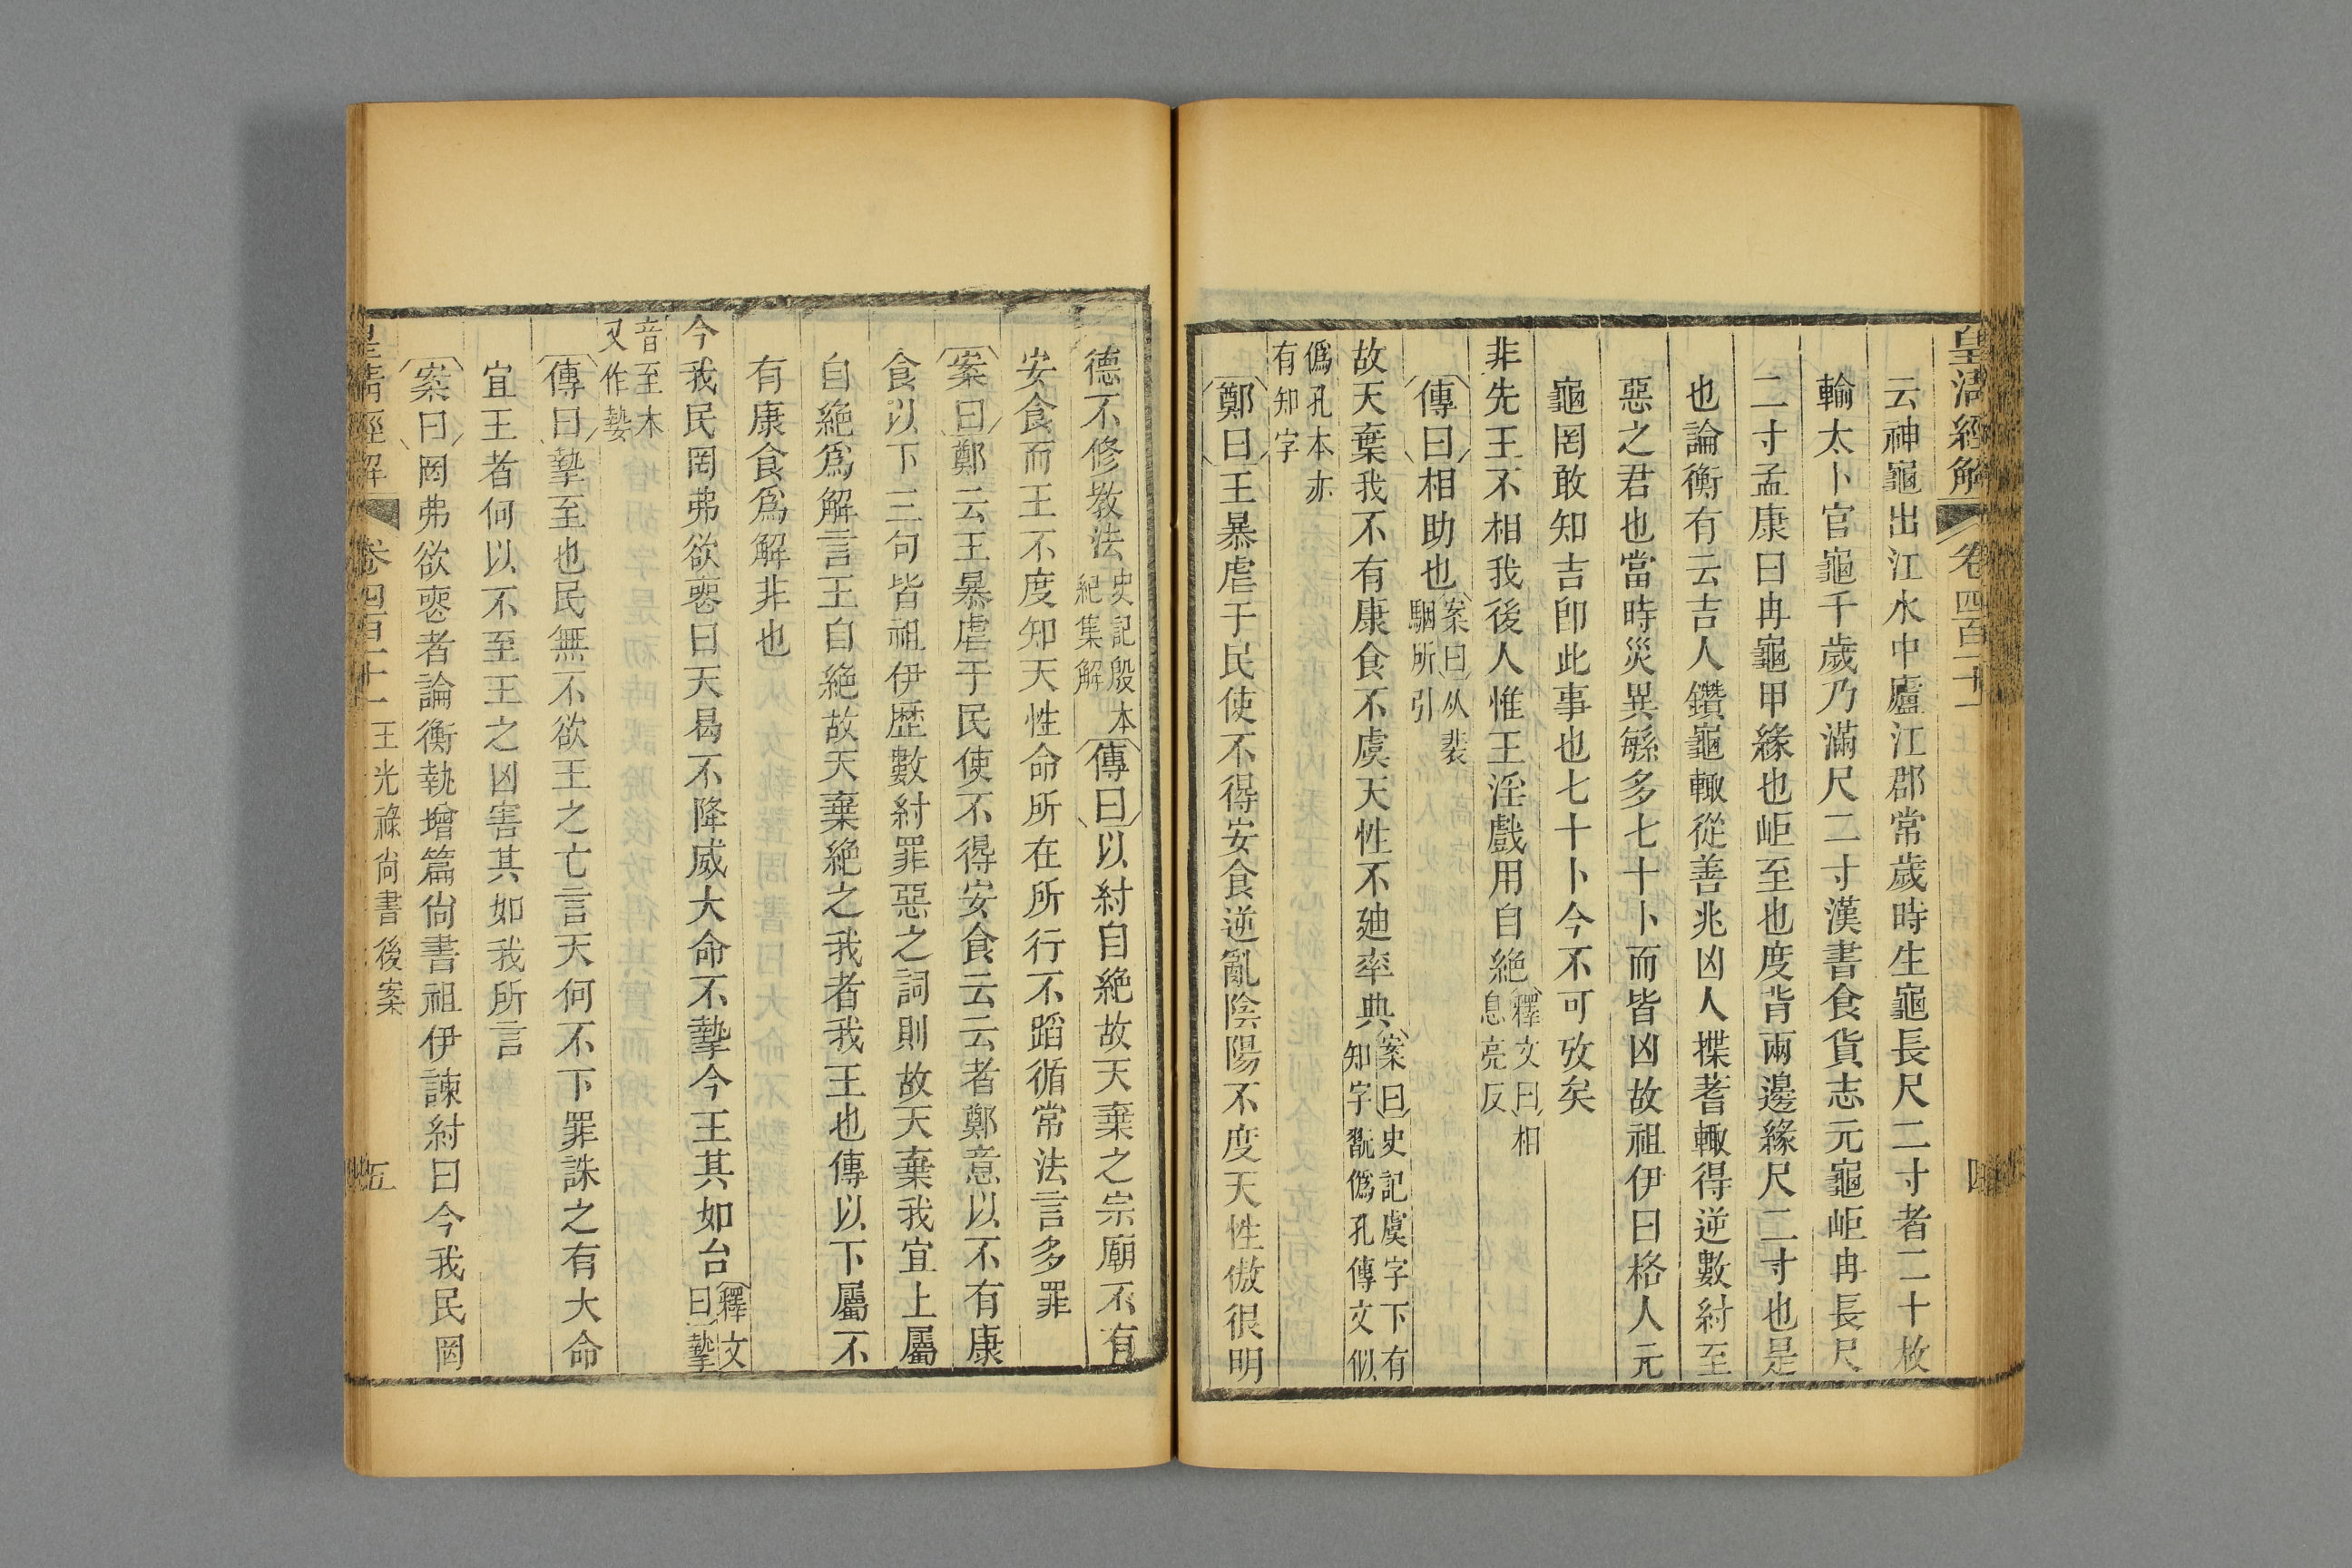 皇清經解 卷四百二十一 四
云神龜出江水中廬江郡常歲時生龜長尺二寸者二十枚
輸太卜官龜千歲乃滿尺二寸漢書食貨志元龜岠冉長尺
二寸孟康曰冉龜甲緣也岠至也度背兩邊緣尺二寸也是
也論衡有云吉人鑽龜輙從善兆凶人揲蓍輙得逆數紂至
惡之君也當時災異緐多七十卜而皆凶故祖伊曰格人元
龜罔敢知吉卽此事也七十卜今不可攷矣
非先王不相我後人惟王淫戲用自絶釋文曰相息亮反
傳曰相助也案曰从裴駰所引
故天棄我不有康食不虞天性不廸率典案曰史記虞字下有知字翫僞孔傳文似
僞孔本亦有知字
鄭曰王暴虐于民使不得安食逆亂陰陽不度天性傲很明
德不修敎法史記殷本紀集解傳曰以紂自絶故天棄之宗廟不有
安食而王不度知天性命所在所行不蹈循常法言多罪
案曰鄭云王暴虐于民使不得安食云云者鄭意以不有康
食以下三句皆祖伊歷數紂罪惡之詞則故天棄我宜上屬
自絶爲解言王自絶故天棄絶之我者我王也傳以下屬不
有康食爲解非也
今我民罔弗欲喪曰天曷不降威大命不摯今王其如台釋文曰摯
音至本又作䞇
傳曰摯至也民無不欲王之亡言天何不下罪誅之有大命
宜王者何以不至王之凶害其如我所言
案曰罔弗欲喪者論衡執增篇尙書祖伊諫紂曰今我民罔
皇清經解 卷四百二十一 王光祿尙書後案 五